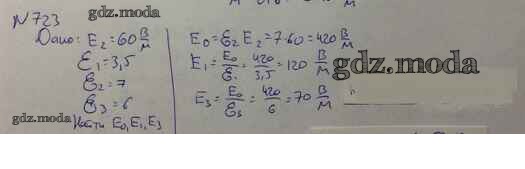 N723
gdz.moda
Дано: E₂=60 В/м
Ɛ₁=3,5
Ɛ₂=7
Ɛ₃=6
gdz.moda
Найти E₀,E₁,E₃
E₀=Ɛ₂E₂=7·60=420 В/м
E₁=E₀/Ɛ₁=420/3,5=120 В/м
gdz.moda
E₃=E₀/Ɛ₃=420/6=70 В/м